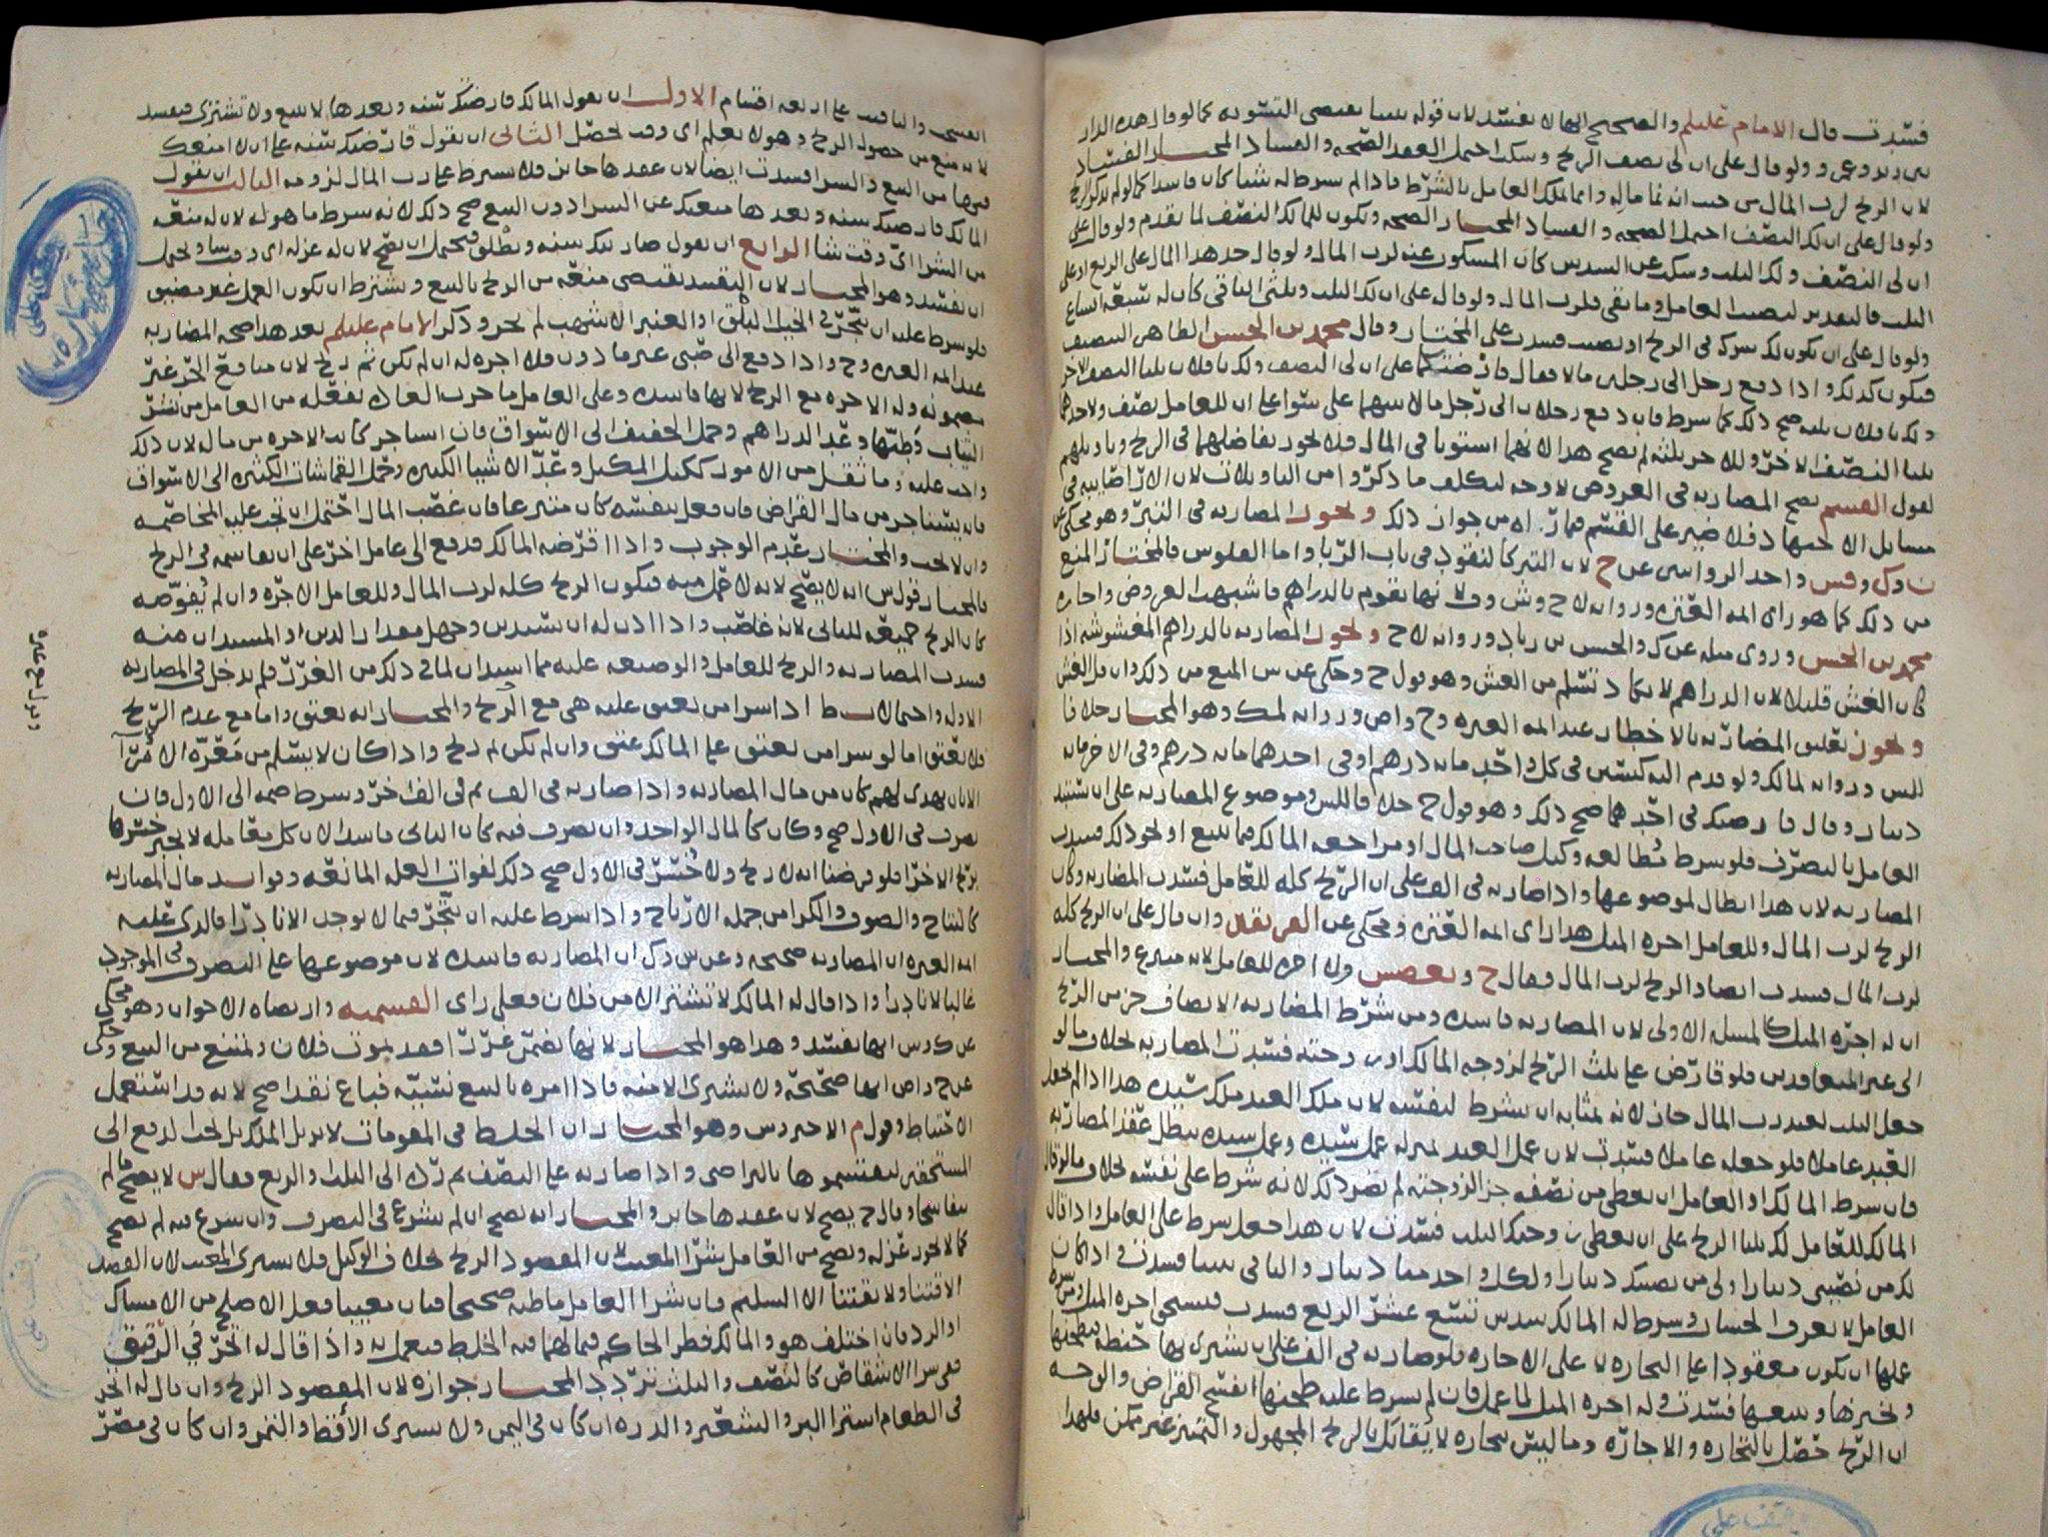 فسدت قال الامام عليلم والصحيح انها لا تفسد لان قوله بيننا يقتضي التسويه كما لو قال هذه الدار
بين زيد وعمرو ولو قال على ان لي نصف الربح وسكت احتمل العقد الصحه والفساد المختار الفساد
لان الربح لرب المال من حيث انه نما ماله وانما يملك العامل بالشرط فاذا لم يشرط له شيئا كان فاسدا كما لو لم يذكر الربح
ولو قال على ان لك النصف احتمل الصحه والفساد المختار الصحه ويكون للمالك النصف لما تقدم ولو قال على
ان لي النصف ولك الثلث وسكت عن السدس كان المسكوت عنه لرب المال ولو قال خذ هذا المال على الربع او على
الثلث فالتقدير لنصيب العامل وما بقي فلرب المال ولو قال على ان لك الثلث وثلثي الباقي كان له سبعة اتساع
ولو قال على ان يكون لك شرك في الربح او نصيب فسدت على المختار وقال محمد بن الحسن الظاهر التنصيف
فيكون كذلك واذا دفع رجل الى رجلين مالا فقال قارضتكما على ان لي النصف ولك يا فلان ثلثا النصف الاخر
ولك يا فلان ثلثه صح ذلك كما شرط فان دفع رجلان الى رجل مالا بينهما على سوا على ان للعامل نصف ولاحدهما
ثلثا النصف الاخر وللاخر ثلثه لم يصح هذا لانهما استويا في المال فلا يجوز تفاضلهما في الربح وتاويلهم
لقول القسم تصح المضاربه في العروض لا وجه لتكلف ما ذكروا من التاويلات لان الاراضابيه في
مسايل الاجتهاد فلا ضير على القسم فيما راه من جواز ذلك وتجوز المضاربه في التبر وهو محكي عن
ن وك وفس واحد الروايتين عن ح لان التبر كالنقود في باب الربا واما الفلوس فالمختار المنع
من ذلك كما هو راي ايمة العتره وروايه لاح وش وف لانها تقوم بالدراهم فاشبهت العروض واجازه
محمد بن الحسن وروي مثله عن ك والحسن بن زياد وروايه لاح وتجوز المضاربه بالدراهم المغشوشه اذا
كان الغش قليلا لان الدراهم لا تكاد تسلم من الغش وهو قول ح وحكي عن س المنع من ذلك وان قل الغش
وتجوز تعليق المضاربه بالاخطار عند ايمة العتره وح واص وروايه لمك وهو المختار خلافا
للس وروايه لمالك ولو قدم اليه كيسين في كل واحد مايه درهم او في احدهما مايه درهم وفي الاخر مايه
دينار وقال قارضتك في احدهما صح ذلك وهو قول ح خلافا للس وموضوع المضاربه على ان يستبد
العامل بالتصرف فلو شرط مطالعه وكيل صاحب المال او مراجعه المالك فيما يبيع او نحو ذلك فسدت
المضاربه لان هذا ابطال لموضوعها واذا ضاربه في الف على ان الربح كله للعامل فسدت المضاربه وكان
الربح لرب المال وللعامل اجره المثل هذا راي ايمة العتره ومحكي عن الفريقين وان قال على ان الربح كله
لرب المال فسدت ايضا والربح لرب المال فقال ح وبعض س ولا اجره للعامل لانه متبرع والمختار
ان له اجره المثل كالمسله الاولى لان المضاربه فاسده ومن شرط المضاربه الا يضاف جز من الربح
الى غير المتعاقدين فلو قارض على ثلث الربح لزوجه المالك او زوجته فسدت المضاربه بخلاف ما لو
جعل الثلث لعبد رب المال جاز لانه بمثابه ان يشرط لنفسه لان ملك العبد ملك سيده هذا اذا لم يجعل
العبد عاملا فلو جعله عاملا فسدت لان عمل العبد بمنزله عمل سيده وعمل سيده يبطل عقد المضاربه
فان شرط المالك او العامل ان يعطي من نصفه جزا لزوجته لم يضر ذلك لانه شرط على نفسه بخلاف ما لو قال
المالك للعامل لك ثلثا الربح على ان يعطي زوجتك الثلث فسدت لان هذا جعل شرط على العامل واذا قال
لك من نصيبي دينارا ولي من نصيبك دينارا ولكل واحد منا دينار والباقي بيننا فسدت واذا كان
العامل لا يعرف الحساب وشرط له المالك سدس تسع عشر الربع فسدت فيستحق اجره المثل ومن شرط
عملها ان يكون معقودا على التجاره لا على الاجاره فلو ضاربه في الف على ان يشتري بها حنطه فيطحنها
ويخبزها ويبيعها فسدت وله اجره المثل لما عمل فان لم يشرط عليه طحنها انفسخ القراض والوجه
ان الربح حصل بالتجاره والاجاره وما ليس تجاره لا يقابل بالربح المجهول والتمييز غير ممكن فلهذا
الفسخ والتاقيت على اربعه اقسام الاول ان يقول المالك قارضتك سنه وبعدها لا تبيع ولا تشتري فيفسد
لانه منع من حصول الربح وهو لا يعلم اي وقت يحصل الثاني ان يقول قارضتك سنه على ان لا امنعك
فيها من البيع والشرا فسدت ايضا لان عقدها جايز فلا يشرط على رب المال لزومه الثالث ان يقول
المالك قارضتك سنه وبعدها منعتك عن الشرا دون البيع صح ذلك لانه شرط ما هو له لان له منعه
من الشرا اي وقت شا الرابع ان يقول ضاربتك سنه ويطلق فيحتمل ان تصح لان له عزله اي وقت شا ويحتمل
ان تفسد وهو المختار لان التقييد يقتضي منعه من الربح بالبيع ويشترط ان يكون العمل غير مضيق
فلو شرط عليه ان يتجر في الخيل البلق او العنبر الاشهب لم يجز وذكر الامام عليلم بعد هذا صحه المضاربه
عند ايمه العتره وح واذا دفع الى صبي غير ماذون فلا اجره له ان لم يكن ثم ربح لان منافع الحر غير
مضمونه وله الاجره مع الربح لانها فاسده وعلى العامل ما جرت العاده بفعله من العامل من نشر
الثياب وطيها وعد الدراهم وحمل الخفيف الى الاسواق فان استاجر كانت الاجره من ماله لان ذلك
واجب عليه وما ثقل من الامور ككيل المكيل وعد الاشيا الكثيره وحمل القماشات الكثيره الى الاسواق
فانه يستاجر من مال القراض فان فعل بنفسه كان متبرعا فان غصب المال احتمل ان تجب عليه المخاصمه
وان لا تجب والمختار عدم الوجوب واذا قرضه المالك فدفع الى عامل اخر على ان يقاسمه في الربح
فالمختار قول س انه لا يصح لانه لا عمل منه فيكون الربح كله لرب المال وللعامل الاجره وان لم يفوضه
كان الربح جميعه للثاني لانه غاصب واذا اذن له ان يستدين وجهل مقدار الدين او المستدان منه
فسدت المضاربه والربح للعامل والوضيعه عليه مما استدان لما في ذلك من الغرر فلم يدخل في المضاربه
الاوله واحتمالات ط اذا شرا من يعتق عليه هي مع الربح والمختار انه يعتق واما مع عدم الربح
فلا يعتق اما لو شرا من يعتق على المالك عتق وان لم يكن ثم ربح واذا كان لا يسلم من معرة الامرا
الا بان يهدي لهم كان من مال المضاربه واذا ضاربه في الف ثم في الف اخر وشرط ضمه الى الاول فان
تصرف في الاول صح وكان كالمال الواحد وان تصرف فيه كان الثاني فاسدا لان كل معامله لا يجبر خسرها
بربح الاخرا فلو فرضنا انه لا ربح ولا خسر في الاول صح ذلك لفوات العله المانعه وفوايد مال المضاربه
كالنتاج والصوف والكرا من جمله الارباح واذا شرط عليه ان يتجر فيما لا يوجد الا نادرا فالذي عليه
ايمه العتره ان المضاربه صحيحه وعن س وك ان المضاربه فاسده لان موضوعها على التصرف في الموجود
غالبا لا نادرا واذا قال له المالك لا تشتر الا من فلان فعلى راي القسميه وارتضاه الاخوان وهو محكي
عن ك وس انها تفسد وهذا هو المختار لانها تضمن غررا فقد يموت فلان ويمتنع من البيع وحكي
عن ح واص انها صحيحة ولا يشتري الا منه فاذا امره بالبيع نسيئه فباع نقدا صح لانه قد استعمل
الاحتياط وقول م الاخير وس وهو المختار ان الخلط في المقومات لا يزيل الملك بل يجب الدفع الى
المستحقين ليقتسموها بالتراضي واذا ضاربه على النصف ثم رده الى الثلث والربع فقال س لا يصح ما لم
يتفاسخا وقال ح يصح لان عقدها جايز والمختار انه تصح ان لم يشرع في التصرف وان شرع فيه لم تصح
كما لا يجوز عزله ويصح من العامل شرا المعيب لان المقصود الربح بخلاف الوكيل فلا يشتري المعيب لان القصد
الاقتنا ولا يقتنا الا السليم فان شرا العامل ما ظنه صحيحا فبان معيبا فعل الاصلح من الامساك
او الرد فان اختلف هو والمالك نظر الحاكم فيما لهما فيه الخلط فيعمل به واذا قال له اتجر في الرقيق
ففي شرا الاشقاص كالنصف والثلث تردد المختار جوازه لان المقصود الربح وان قال له اتجر
في الطعام اشترا البر والشعير والذره ان كان في اليمن ولا يشتري الاقط والتمر وان كان في مصر